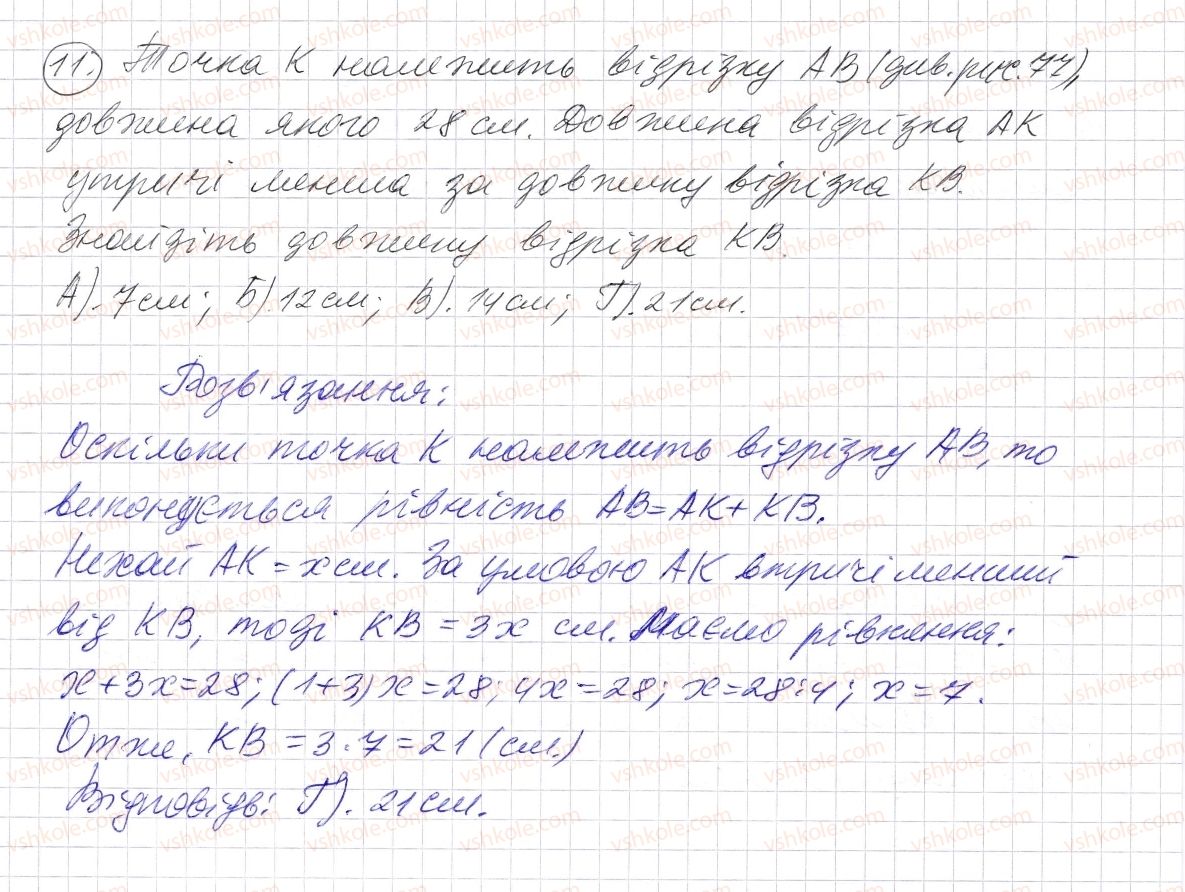 11. Точка К належить відрізку АВ (див. рис. 77),
довжина якого 28 см. Довжина відрізка АК
утричі менша за довжину відрізка КВ.
Знайдіть довжину відрізка КВ.
А). 7 см; Б). 12 см; В). 14 см; Г). 21 см.
Розв'язання:
Оскільки точка К належить відрізку АВ, то
виконується рівність АВ = АК + КВ.
Нехай АК = х см. За умовою АК втричі менший
від КВ, тоді КВ = 3х см. Маємо рівняння:
х + 3х = 28; (1+3)х = 28; 4х = 28; х = 28:4; х = 7.
Отже, КВ = 3·7 = 21 (см.)
Відповідь: Г). 21 см.